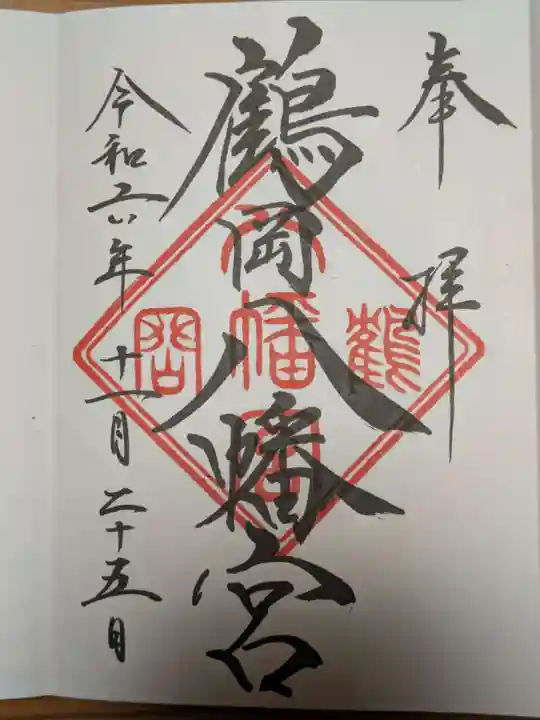 奉拝
鶴岡八幡宮
鶴
八幡宮
岡
令和六年十一月二十五日